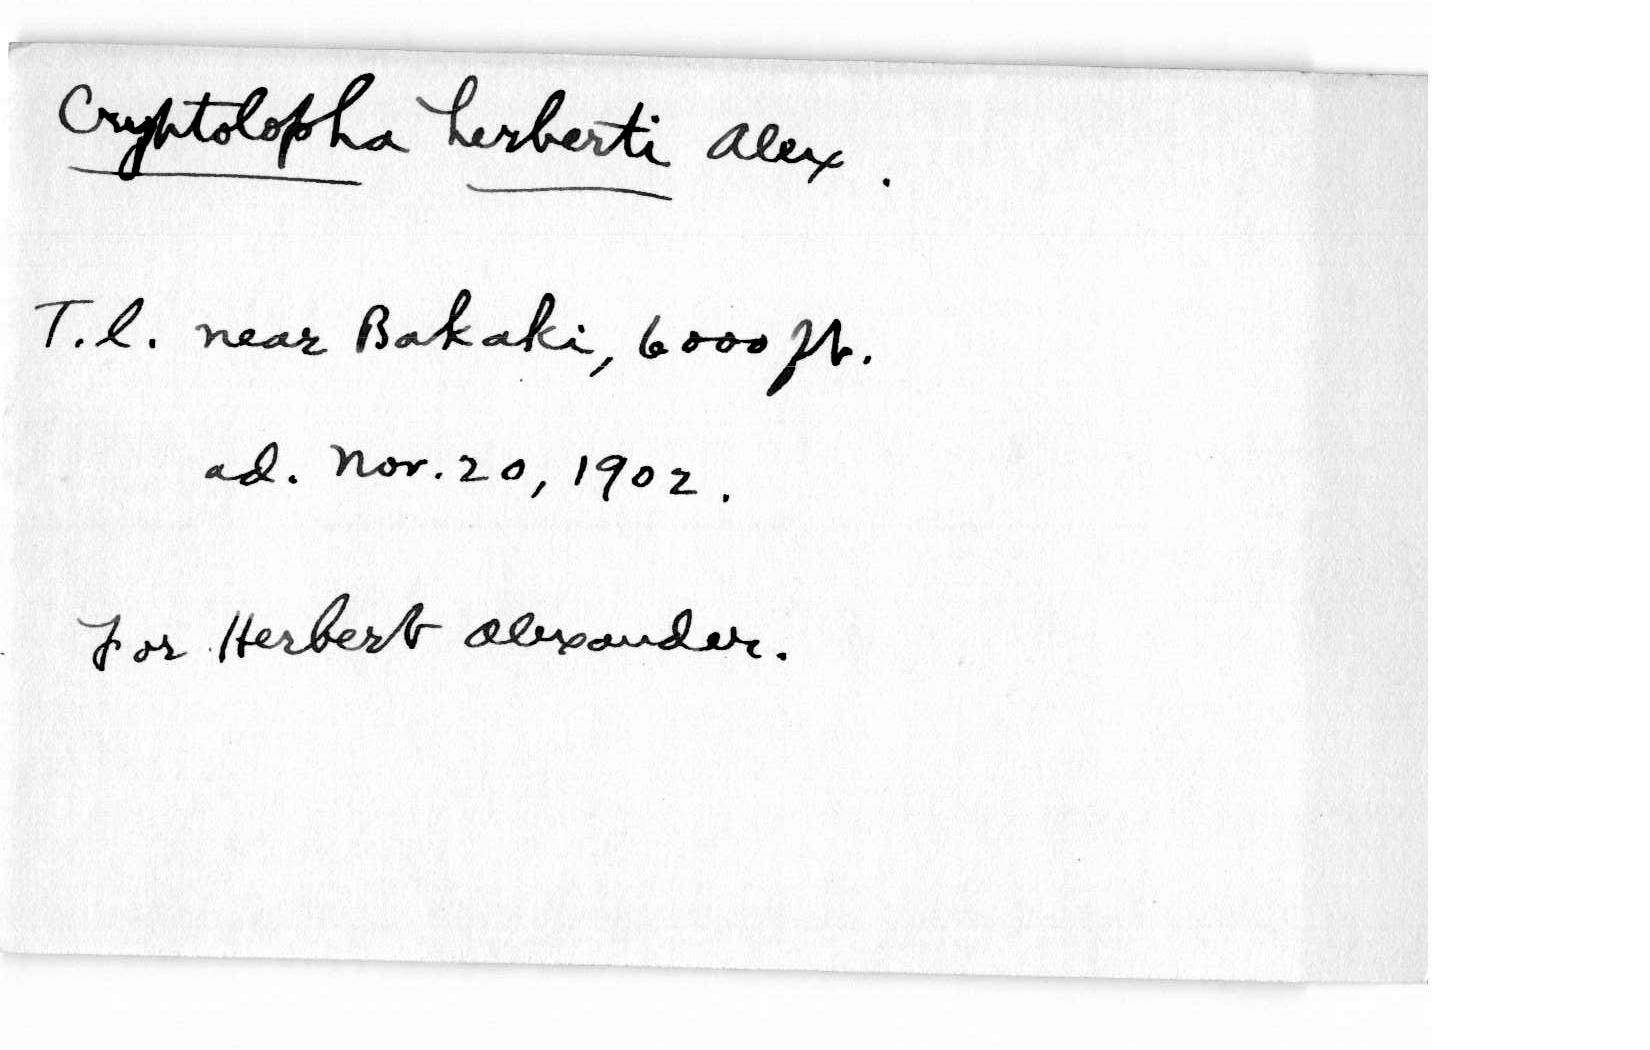 Cryptolopha herberti Alex.
T.l. near Bakaki, 6000 ft.
ad. Nov. 20, 1902.
for Herbert Alexander.